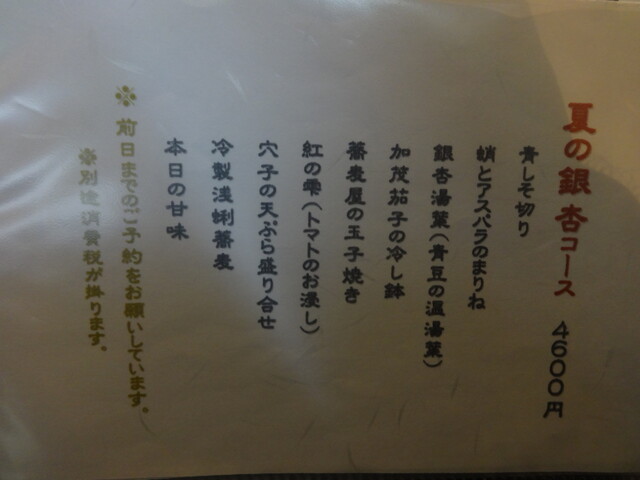 夏の銀杏コース 4600円
青しそ切り
蛸とアスパラのまりね
銀杏湯葉(青豆の温湯葉)
加茂茄子の冷し鉢
蕎麦屋の玉子焼き
紅の雫(トマトのお浸し)
穴子の天ぷら盛り合せ
冷製浅蜊蕎麦
本日の甘味
※前日までのご予約をお願いしています。
※別途消費税が掛ります。